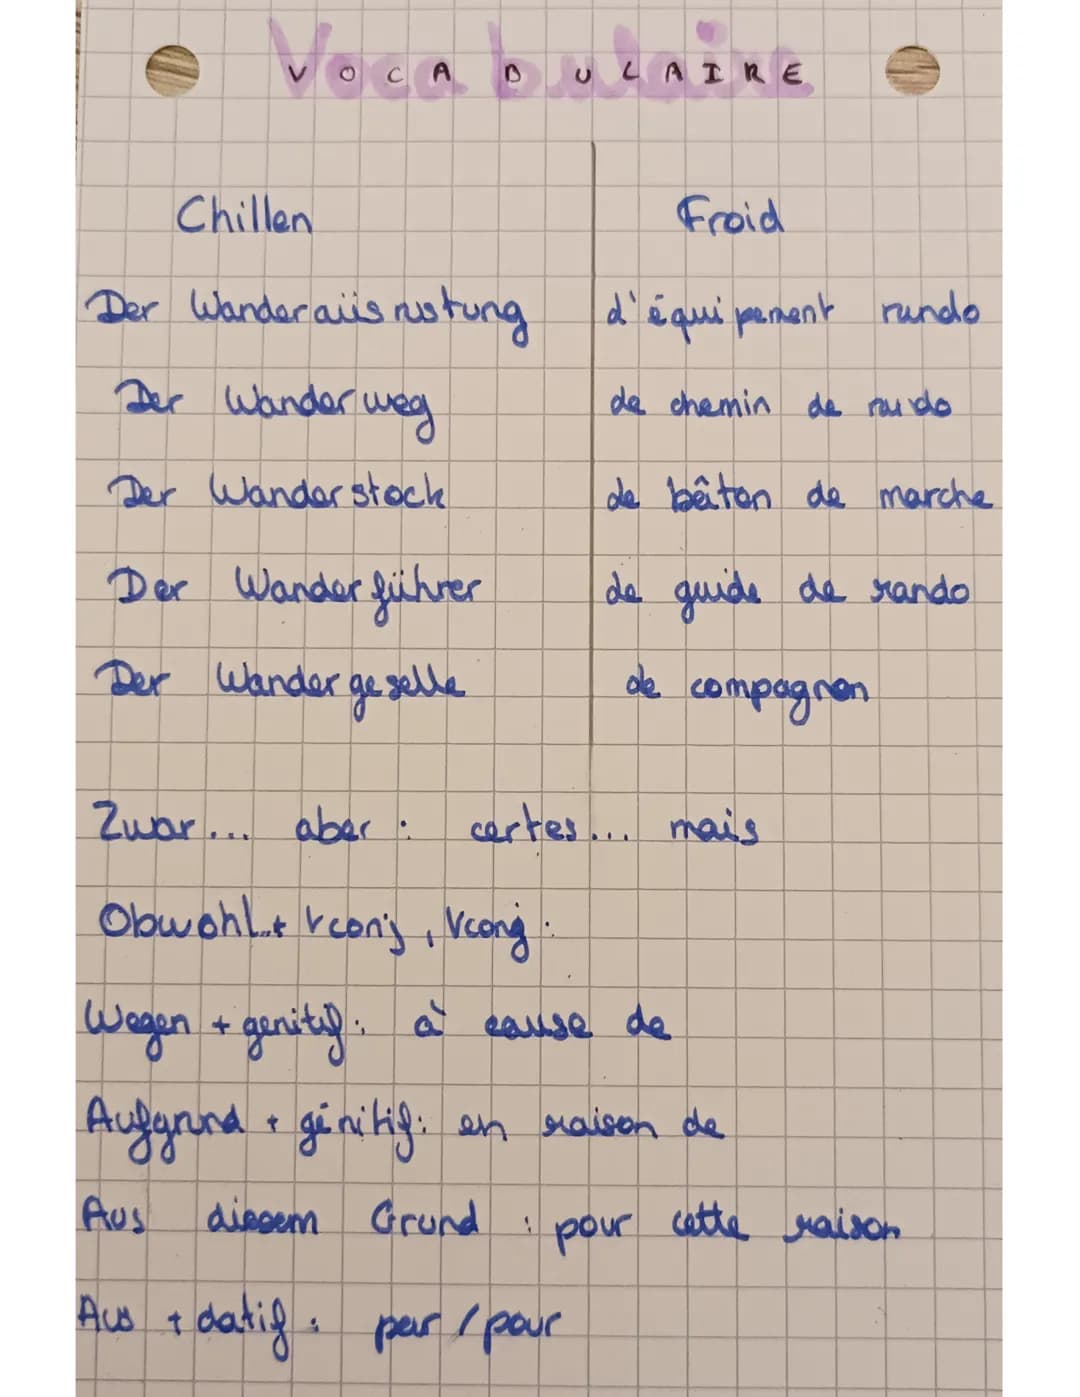 VOCABULAIRE
Chillen Froid
Der Wanderaüsrustung d'équipement rando
Der Wanderweg de chemin de rando
Der Wanderstock de bâton de marche
Der Wanderführer de guide de rando
Der Wandergeselle de compagnon
Zwar... aber : certes... mais
Obwohl..+ Vconj, Vconj :
Wegen + genitif : à cause de
Aufgrund + génitif : en raison de
Aus diesem Grund : pour cette raison
Aus + datif : par / pour